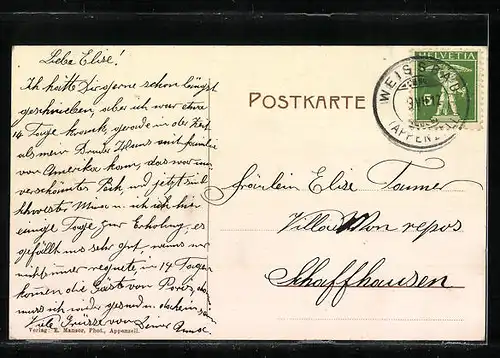 Liebe Elise!
Ich hätte Dir gerne schon längst
geschrieben, aber ich war etwa
14 Tage krank, gerade in der Zeit
als mein Bruder Hans mit Familie
von Amerika kam, das war ein
verschönertes Pech, und jetzt sind
Schwester und ich hier
einige Tage zur Erholung, es
gefällt uns sehr gut wenns nur
nicht immer regnete, in 14 Tagen
kommen die Gäste von Paris, da
muss ich wieder gesund daheim sein
Viele Grüsse von Deiner
Verlag E. Manser, Phot., Appenzell.
POSTKARTE
HELVETIA
WEISSBAD
(APPENZ
Fräulein Elise Tanner
Villa Mon repos
Schaffhausen